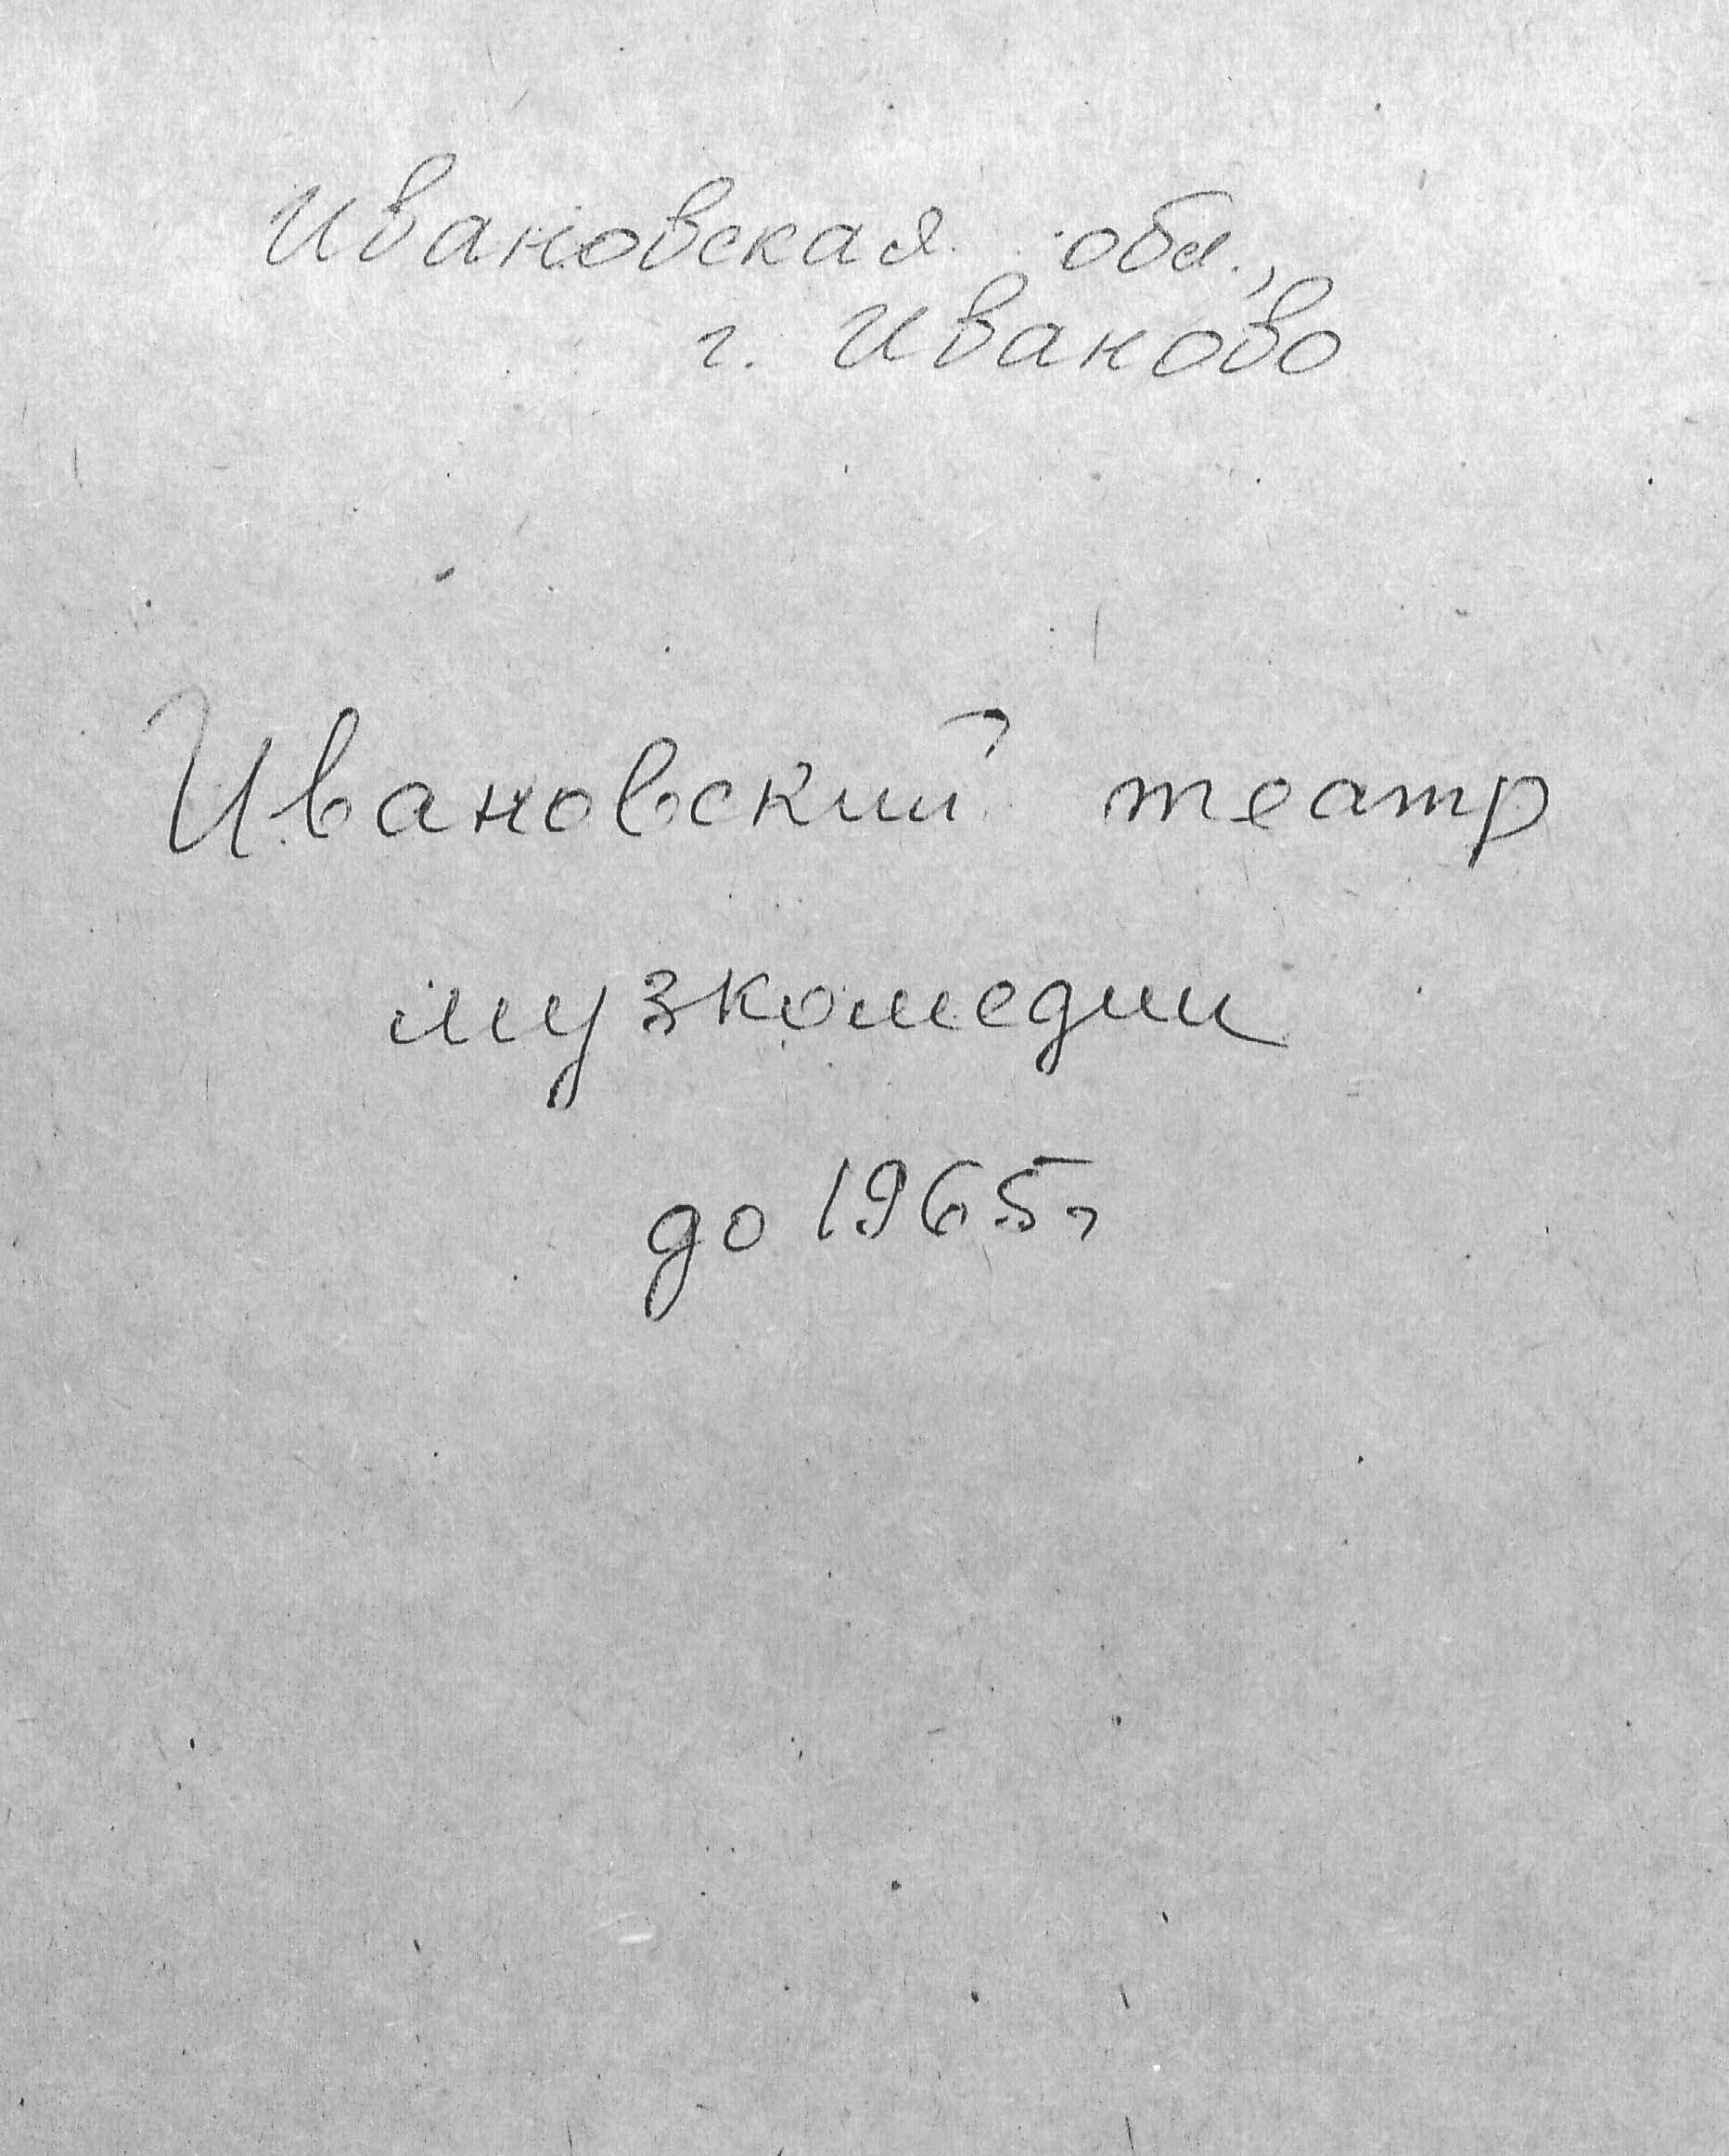 Ивановская обл.,
г. Иваново
Ивановский театр
музкомедии
до 1965г